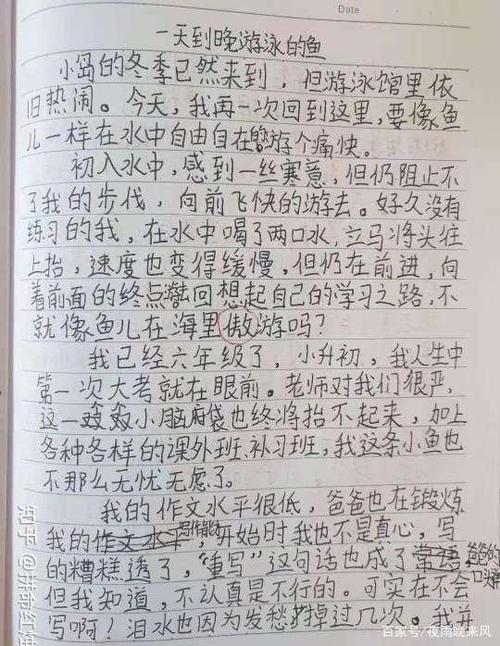 Date
一天到晚游泳的鱼
小岛的冬季已然来到，但游泳馆里依
旧热闹。今天，我再一次回到这里，要像鱼
儿一样在水中自由自在的游个痛快。
初入水中，感到一丝寒意，但仍阻止不
了我的步伐，向前飞快的游去。好久没有
练习的我，在水中喝了两口水，立马将头往
上抬，速度也变得缓慢，但仍在前进，向
着前面的终点潜回想起自己的学习之路，不
就像鱼儿在海里傲游吗？
我已经六年级了，小升初，我人生中
第一次大考就在眼前。老师对我们狠严，
这一颗小脑袋也终将抬不起来，加上
各种各样的课外班、补习班，我这条小鱼也
不那么无忧无虑了。
我的作文水平很低，爸爸也在锻炼
我的写作能力 开始时我也不是真心，写
的糟糕透了，“重写”这句话也成了爸爸的口头禅
但我知道，不认真是不行的。可实在不会
写啊！泪水也因为发愁掉过几次。我并
知乎
百家号/夜雨晚来风